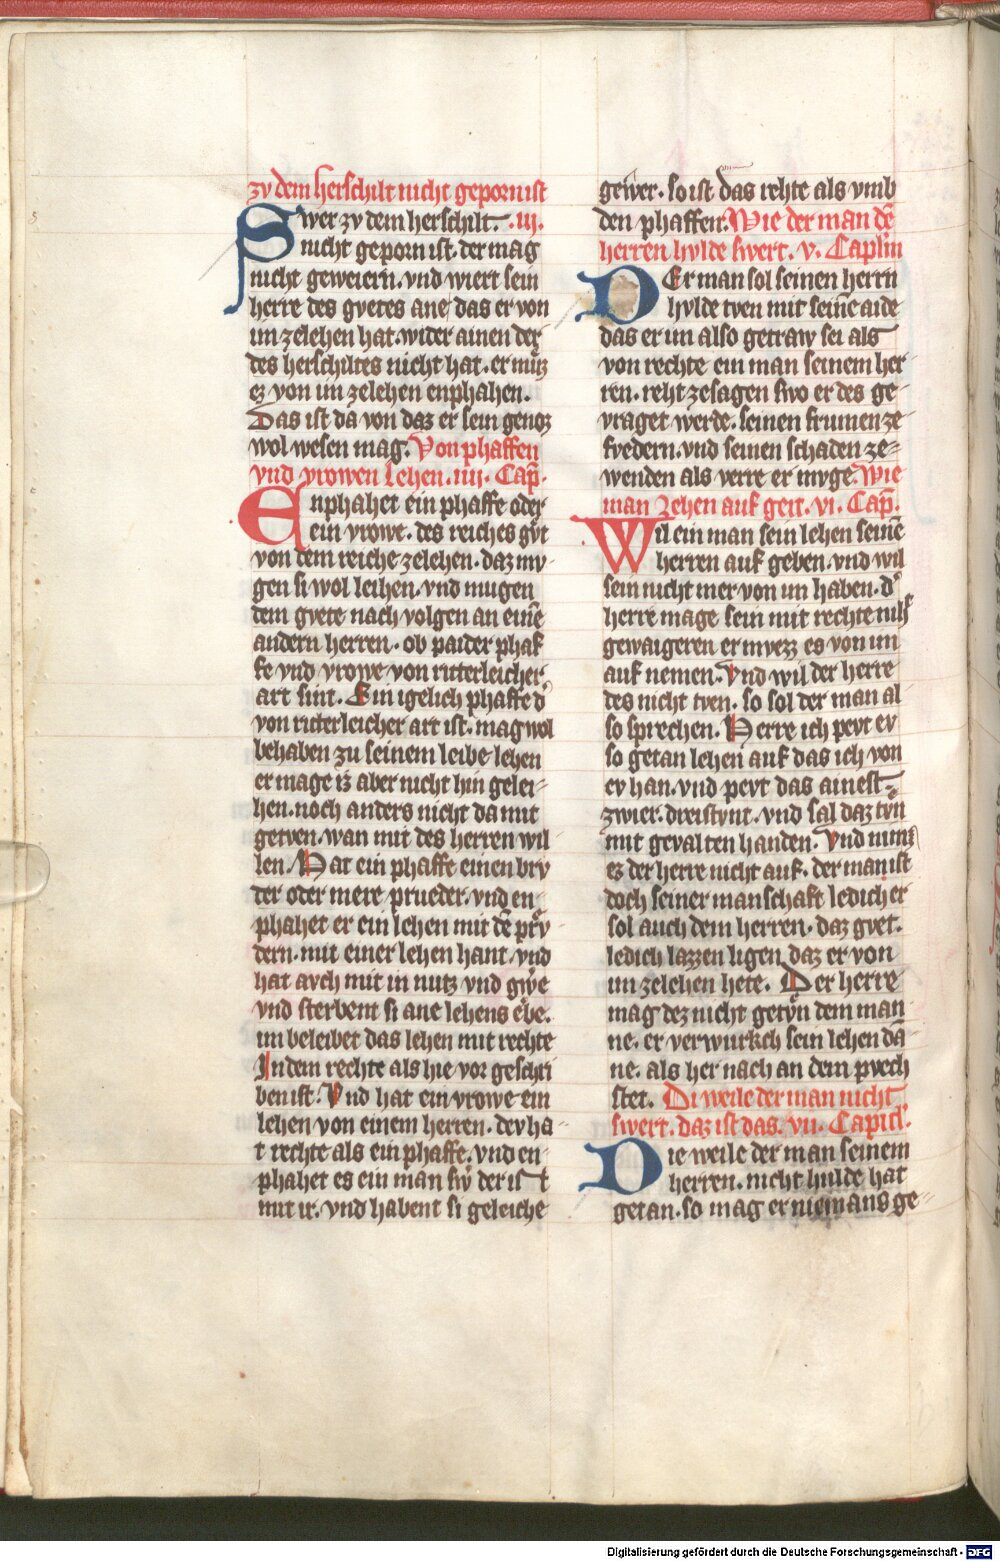 zv dem herschilt nicht geporn ist
Swer zv dem herschilt. .iii.
nicht geporn ist. der mag
nicht geweiern. vnd wiert sein
herre des gvetes ane das er von
im zelehen hat. wider ainen der
des herschiltes nicht hat. er muͤz
ez von im zelehen enphahen.
Das ist da von daz er sein genoz
wol wesen mag. Von phaffen
vnd vrowen lehen. iiii. Cap̄.
Enphahet ein phaffe oder
ein vrowe. des reiches gv̊t
von dem reiche zelehen. daz mv-
gen si wol leihen. vnd mugen
dem gvete nach volgen an einē
andern herren. ob paider phaf
fe vnd vrowe von ritterleicher
art sint. Ein igelich phaffe d᾽
von ritterleicher art ist. mag wol
behaben zu seinem leibe lehen
er mage iz aber nicht hin gelei-
hen. noch anders nicht da mit
getven. wan mit des herren wil
len. Hat ein phaffe einen brv
der oder mere prueder. vnd en-
phahet er ein lehen mit dē prv̊
dern. mit einer lehen hant. vnd
hat avch mit in nutz vnd gwͤe
vnd sterbent si ane lehens erbe.
im beleibet das lehen mit rechte
In dem rechte als hie vor geschri
ben ist. Vnd hat ein vrowe ein
lehen von einem herren. dev ha-
t rechte als ein phaffe. vnd en-
phahet es ein man fvͤr der ist
mit ir. vnd habent si geleiche
gewer. so ist das rehte als vmb
den phaffen. Wie der man dē
herren hvlde swert. v. Caplm
DEr man sol seinen herrn
hvlde tven mit seinē aide
das er im also getraw sei als
von rechte ein man seinem her
ren. reht zesagen swo er des ge-
vraget werde. seinen frumen ze
fvedern. vnd seinen schaden ze-
wenden als verre er mvge. Wie
man Lehen auf geit. vi. Cap̄.
Wil ein man sein lehen seinē
herren auf geben. vnd wil
sein nicht mer von im haben. d᾽
herre mage sein mit rechte niht
gewaigeren er mvezz es von im
auf nemen. Vnd wil der herre
des nicht tven. so sol der man al
so sprechen. Herre ich pevt ev
so getan lehen auf das ich von
ev han. vnd pevt das ainest-
zwier. dreistvnt. vnd sal daz tv̊n
mit gevalten handen. Vnd nimt
ez der herre nicht auf. der man ist
doch seiner manschaft ledich er
sol auch dem herren. daz gvet.
ledich lazzen ligen daz er von
im zelehen hete. Der herre
mag dez nicht getv̊n dem man
ne. er verwurkch sein lehen dā
ne. als her nach an dem pvech
stet. Di weile der man nicht
swert. daz ist das. vii. Capitl᾽.
Die weile der man seinem
herren. nicht hulde hat
getan. so mag er niemans ge-
Digitalisierung gefördert durch die Deutsche Forschungsgemeinschaft - DFG